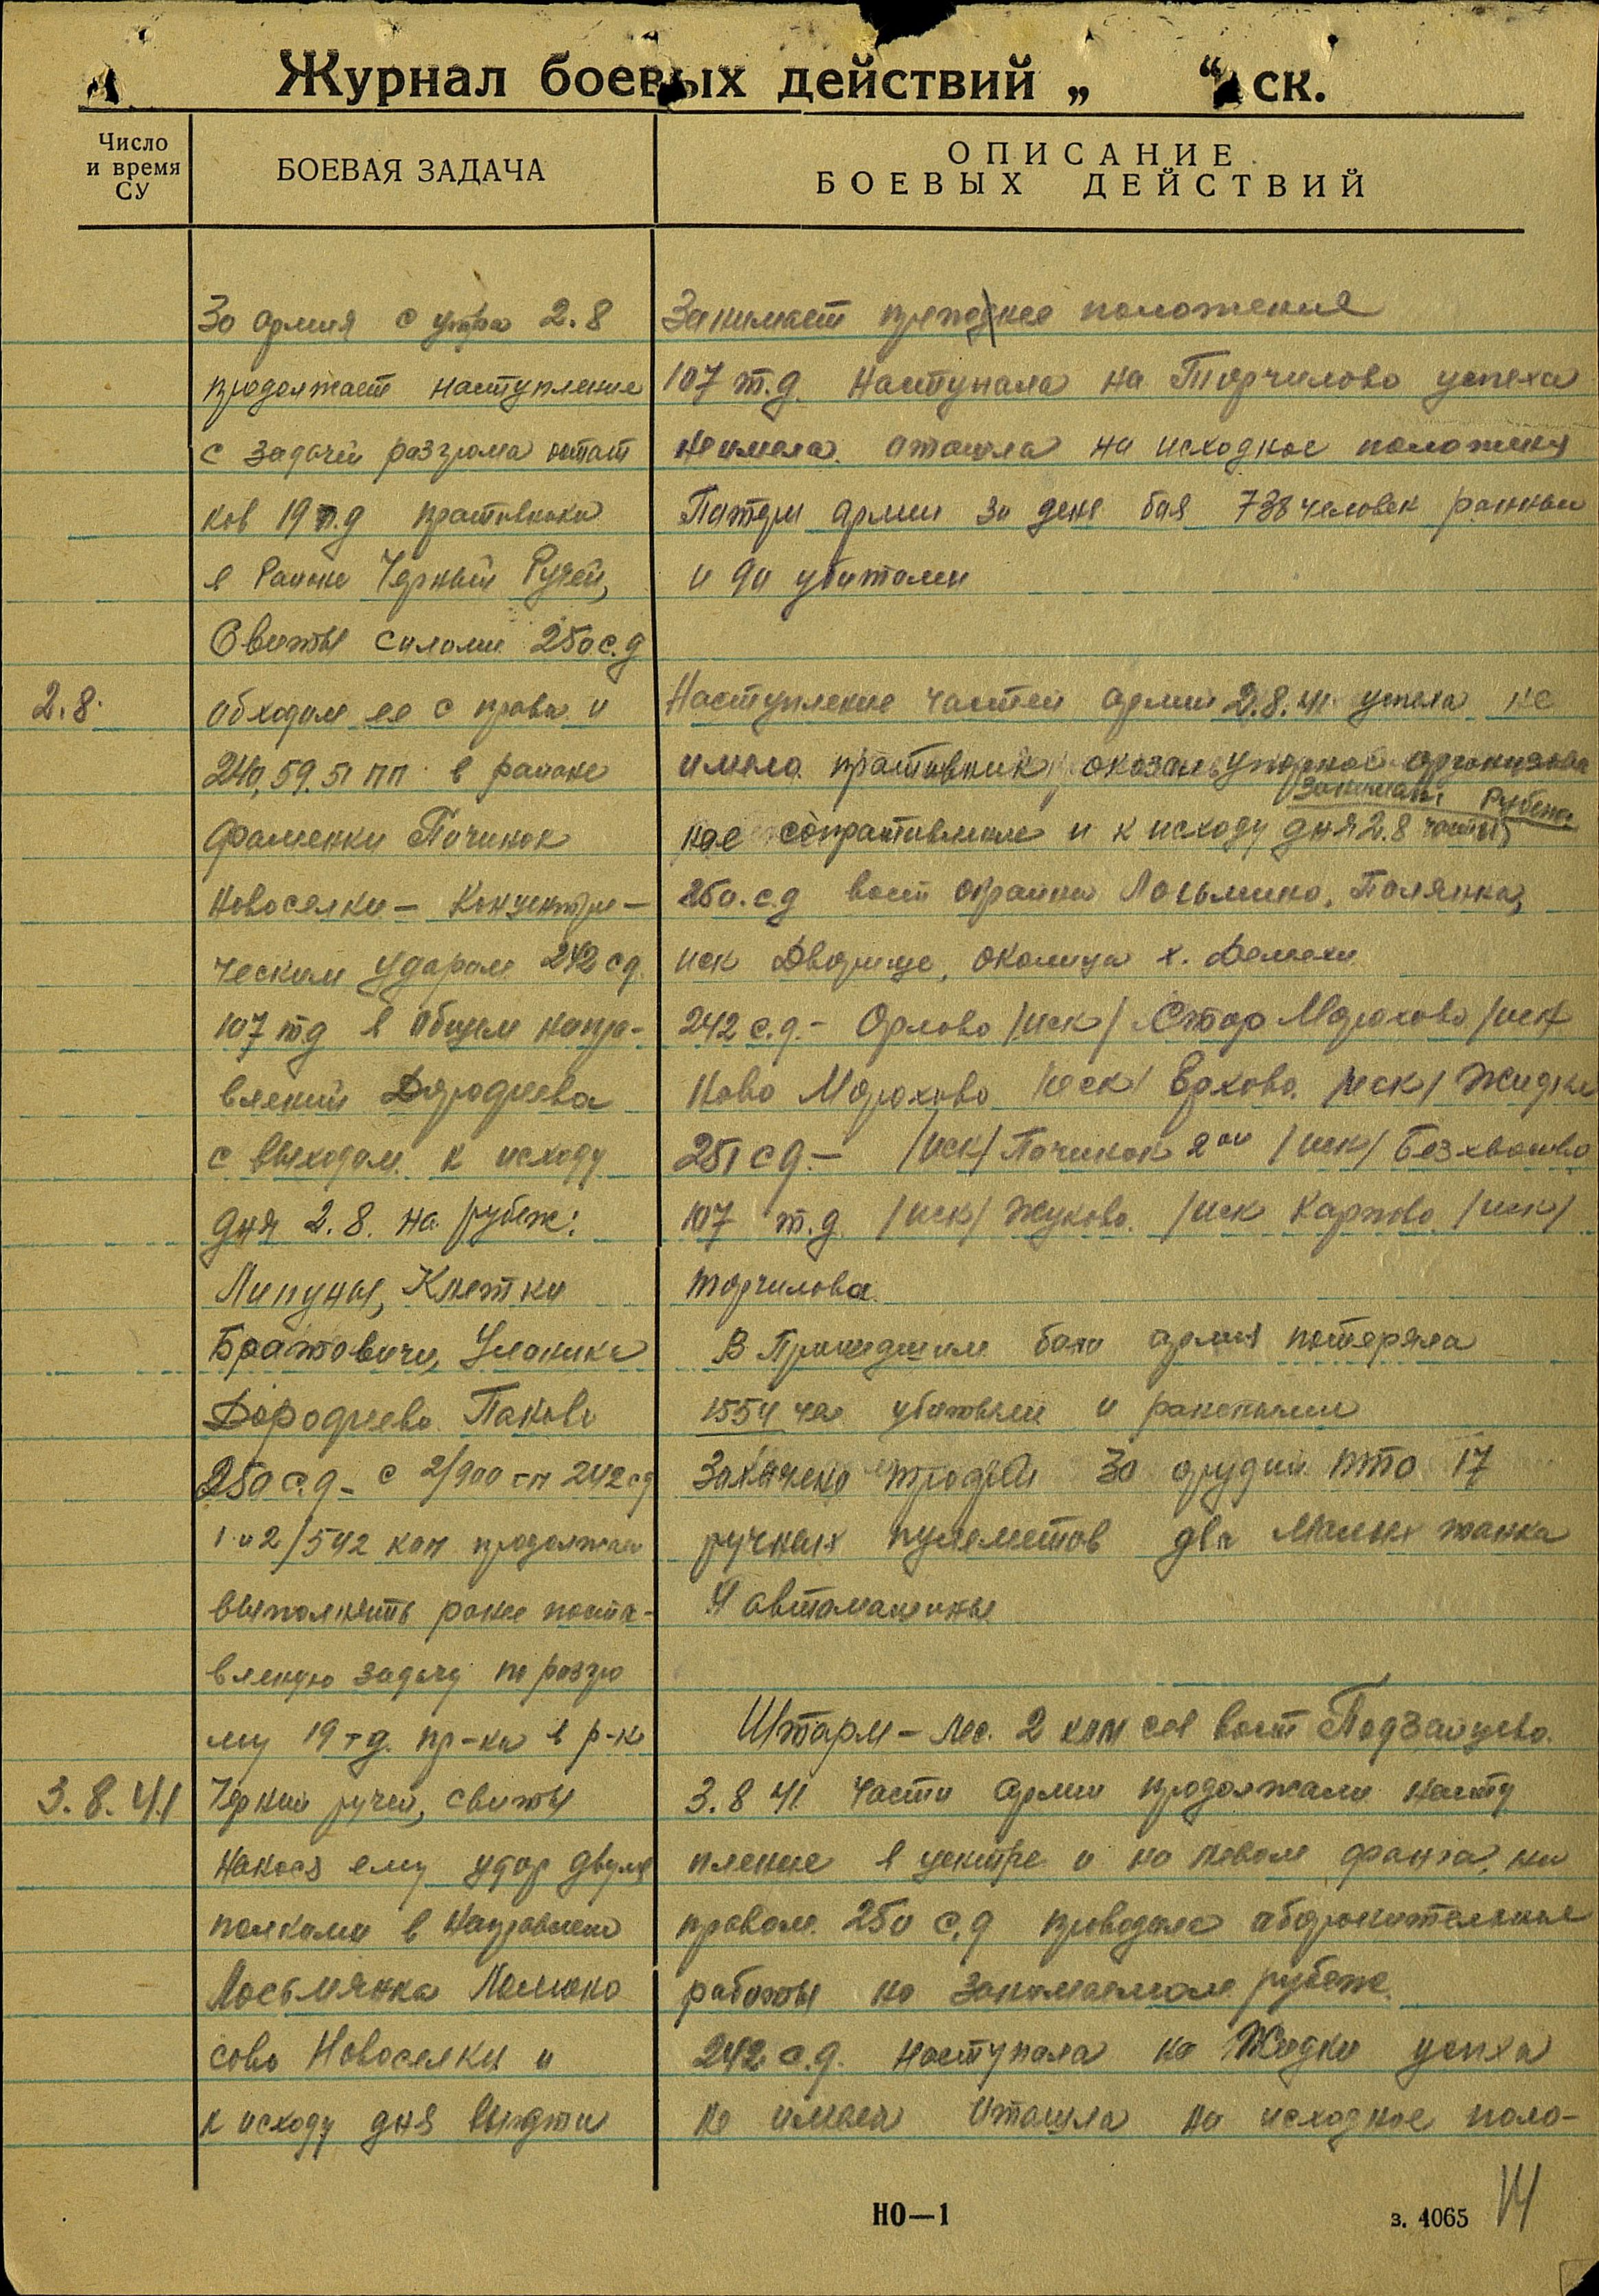 Журнал боевых действий „ “ ск.
Число
и время
СУ
БОЕВАЯ ЗАДАЧА
ОПИСАНИЕ
БОЕВЫХ ДЕЙСТВИЙ
30 армия с утра 2.8
продолжает наступление
с задачей разгрома остат
ков 19 т.д противника
в Районе Черный Ручей,
Свиты силами 250 с.д
2.8.
обходом ее с права и
240, 59, 51 пп в районе
Фаменки Починок
Новоселки – Концентри–
ческим ударом 242 сд.
107 тд в общем напра–
влений
с выходом к исходу
дня 2.8. на рубеж:
Липуны, Клетки
Братовичи,
Паково
250 с.д – с 2/900 сп 242 сд
1 и 2/542 кап продолжает
выполнять ранее поста–
вленую задачу по разгро
му 19 т.д. пр-ка в р-не
3.8.41
Черний ручей, свиты
нанося ему удар двумя
полками в направлени
Лосьмянка
сово Новоселки и
к исходу дня выдти
Занимает прежнее положение
107 т.д. Наступала на Торчилово успеха
не имела. отошла на исходное положения
Потери армии за день боя 738 человек ранным
и убитоми
Наступление частей армии 2.8.41 успеха не
имела противник, оказаль упорное организова
ное сопративление и к исходу дня 2.8 части
занимали Рубеж
250 с.д вост окраина Лосьмино, Полянка,
иск Дворище, околица х. Демехи
242 с.д. – Орлово /иск/ Стар Морохово /иск
Ново Морохово /иск/ Ерхово. /иск/ Жидки
251 сд. – /иск/ Починок 2ой /иск/ Безхвоство
107 т.д /иск/ Жуково. /иск Карпово /иск/
торчилова.
В Прошедшим бою армия потеряла
1554 че убитыми и ранеными
Захвачено трофей 30 орудий ПТО 17
ручных пулеметов два малых танка
4 автомашины
Штарм – лес. 2 клм сев вост Подзайцево.
3.8 41. Части армии продолжали насту
пление в центре и на левом фланга, на
правом 250 с.д проводила оборонительныя
работы на занимаемом рубеже.
242 с.д. наступала на Жидки успеха
не имела отошла на исходное поло–
НО—1
з. 4065
14